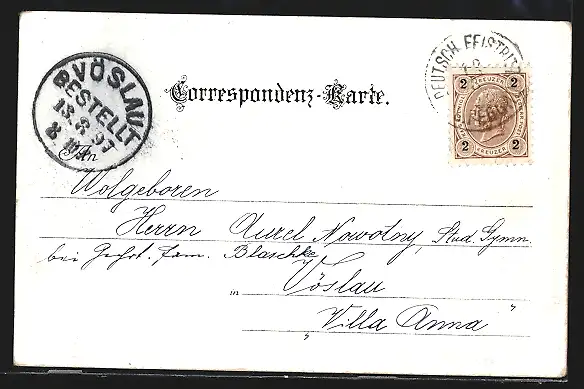 DEUTSCH FEISTRITZ
VÖSLAU
BESTELLT
13.8.97
8.
KREUZER
2 2
2 2
KREUZER
Correspondenz-Karte.
An
Wolgeboren
Herrn Aurel Nowotny, Stud. Gymn.
bei Geehrt. Fam. Blaschke
in Vöslau
„Villa Anna"